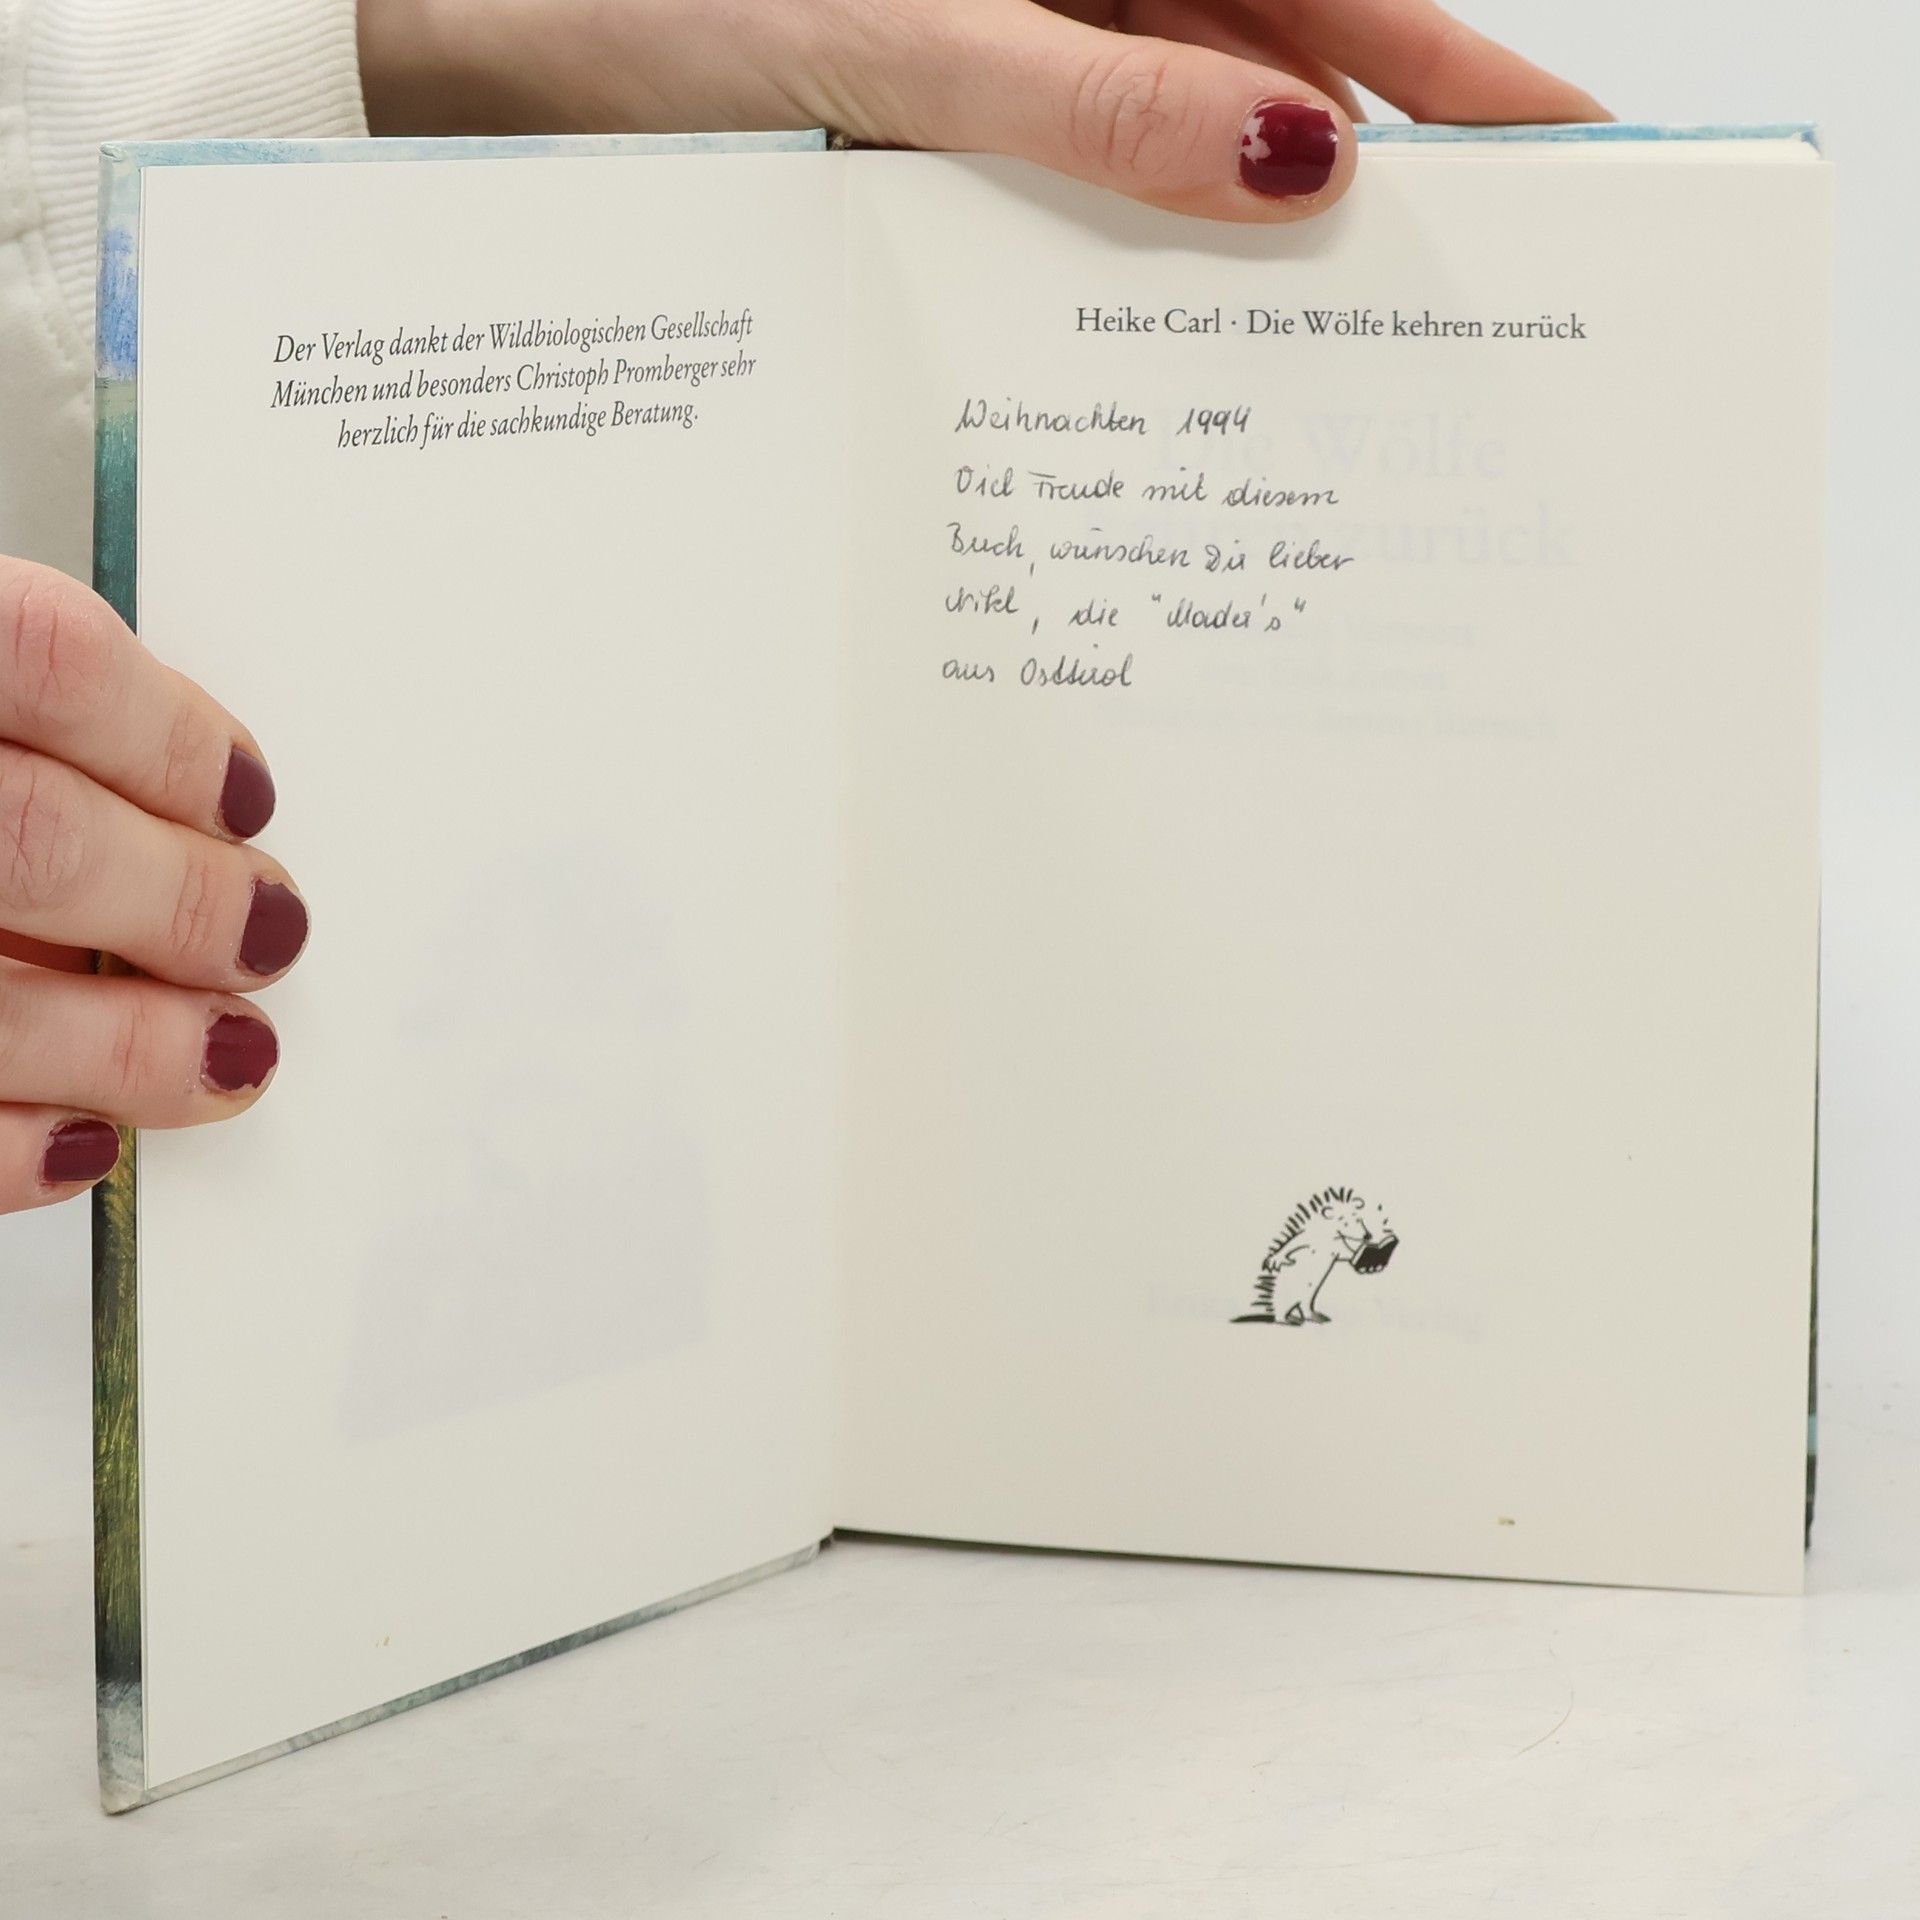 Der Verlag dankt der Wildbiologischen Gesellschaft
München und besonders Christoph Promberger sehr
herzlich für die sachkundige Beratung.
Heike Carl · Die Wölfe kehren zurück
Weihnachten 1994
Viel Freude mit diesem
Buch, wünschen Dir lieber
die "Mader's"
aus Osttirol